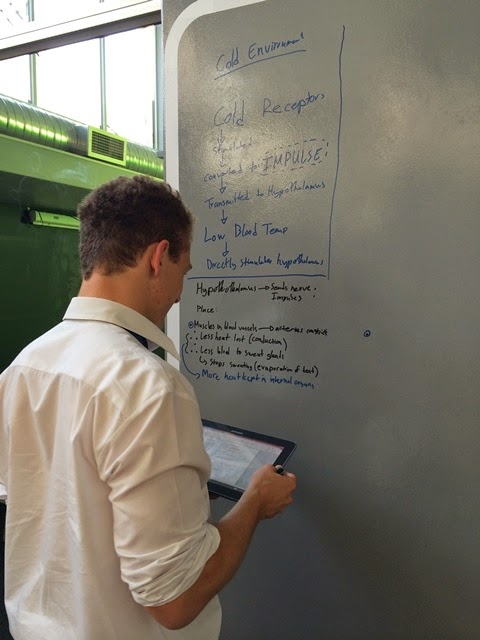 Cold Environment
Cold Receptors
converted to IMPULSE
Transmitted to Hypothalamus
Low Blood Temp
Directly stimulates hypothalamus
→ Sends nerve
Impulses
Place:
Muscles in blood vessels → arteries constrict
∴ Less heat lost (conduction)
∴ Less blood to sweat glands
↳ Stops sweating (evaporation of heat)
More heat kept in internal organs